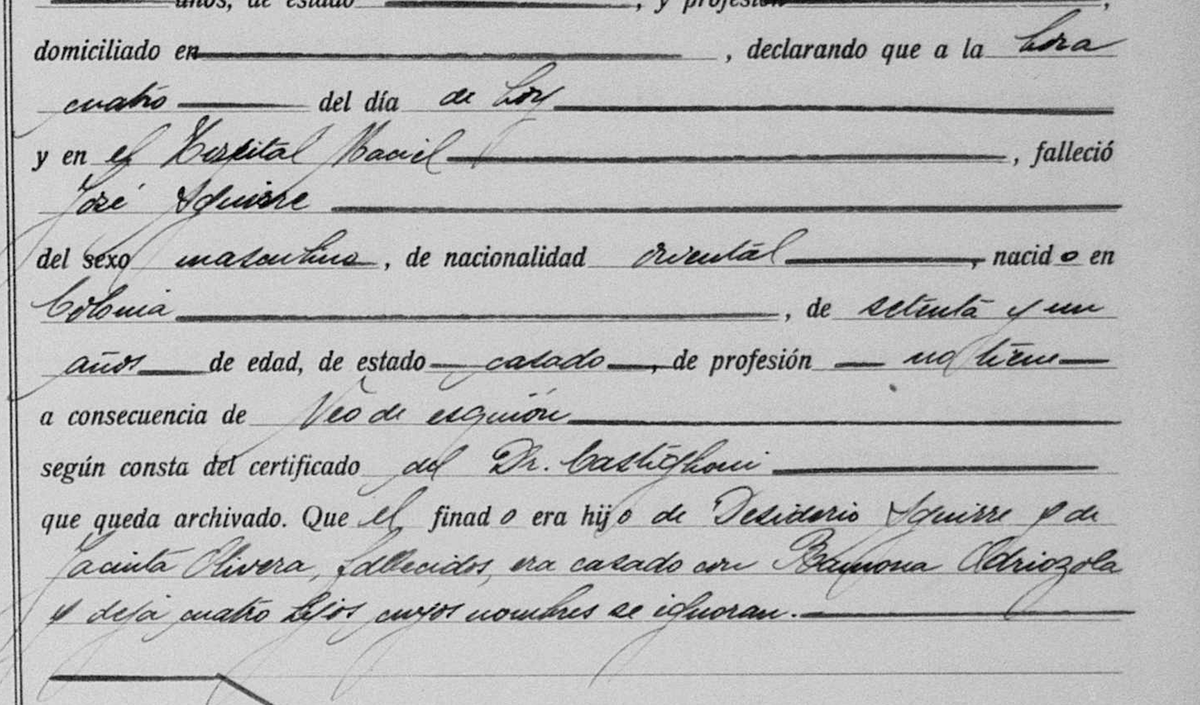 años, de estado , y profesión ,
domiciliado en , declarando que a la hora
cuatro del día de hoy
y en el Hospital Maciel , falleció
José Aguirre
del sexo masculino, de nacionalidad oriental, nacido en
Colonia , de setenta y un
años de edad, de estado casado, de profesión no tiene
a consecuencia de Neo de
según consta del certificado del Dr. Castiglioni
que queda archivado. Que el finado era hijo de Desiderio Aguirre y de
Jacinta Olivera, fallecidos, era casado con Ramona Odriozola
y deja cuatro hijos cuyos nombres se ignoran.